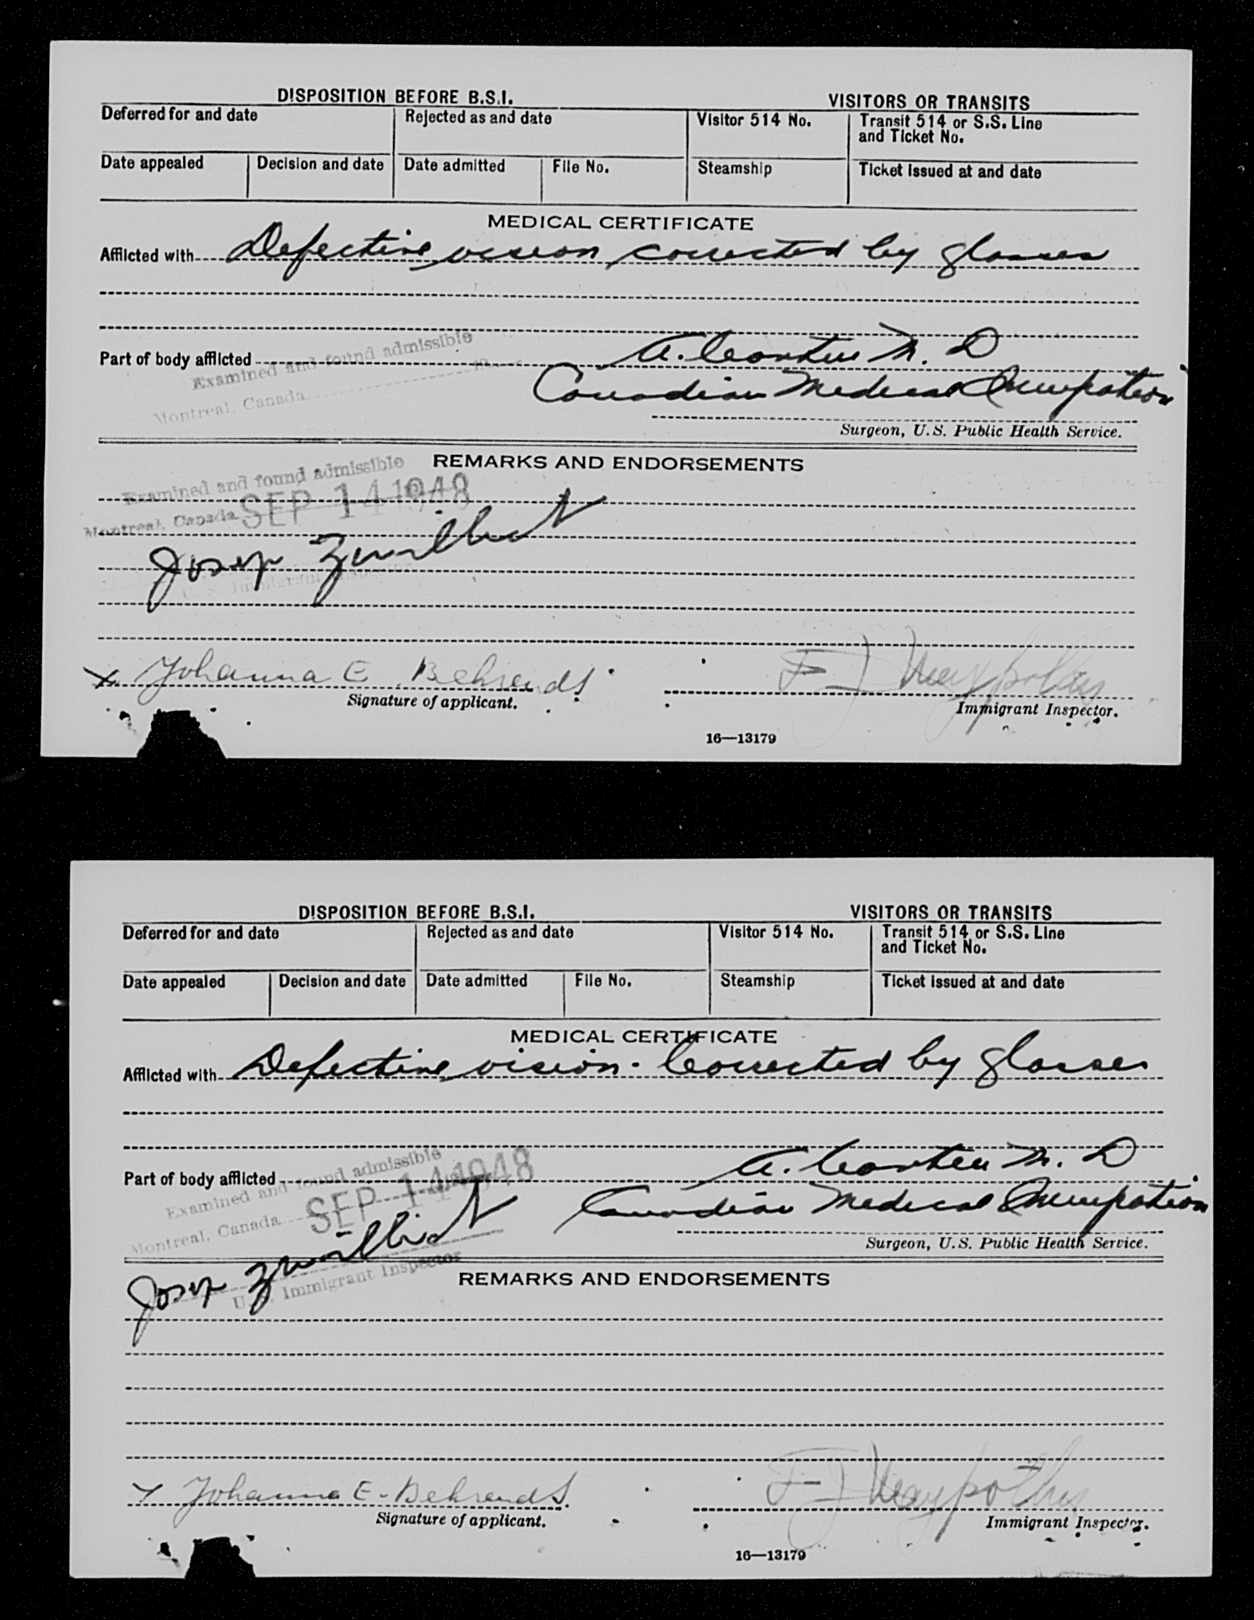 DISPOSITION BEFORE B.S.I.
VISITORS OR TRANSITS
Deferred for and date
Rejected as and date
Visitor 514 No.
Transit 514 or S.S. Line
and Ticket No.
Date appealed
Decision and date
Date admitted
File No.
Steamship
Ticket issued at and date
MEDICAL CERTIFICATE
Afflicted with Defective vision, corrected by glasses
Part of body afflicted
Examined and found admissible
Montreal, Canada
M. D
Canadian Medical
Surgeon, U.S. Public Health Service.
REMARKS AND ENDORSEMENTS
Examined and found admissible
Montreal, Canada SEP 14 1948
Josep
x Johanna E. Behrends
Signature of applicant.
Immigrant Inspector.
16—13179
DISPOSITION BEFORE B.S.I.
VISITORS OR TRANSITS
Deferred for and date
Rejected as and date
Visitor 514 No.
Transit 514 or S.S. Line
and Ticket No.
Date appealed
Decision and date
Date admitted
File No.
Steamship
Ticket issued at and date
MEDICAL CERTIFICATE
Afflicted with Defective vision. Corrected by glasses
Part of body afflicted
Examined and found admissible
Montreal, Canada SEP 14 1948
M. D
Canadian Medical
Surgeon, U.S. Public Health Service.
Josep
U.S. Immigrant Inspector
REMARKS AND ENDORSEMENTS
x Johanna E. Behrends
Signature of applicant.
Immigrant Inspector.
16—13179